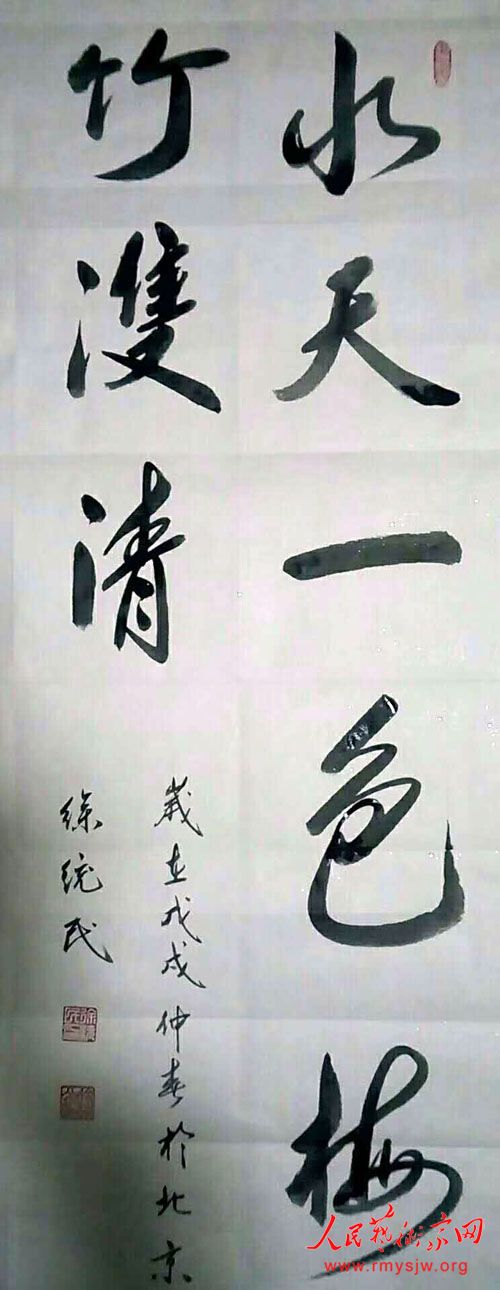 水天一色梅
竹雙清
歲在戊戌仲春於北京
徐統民
人民藝術家网
www.rmysjw.org